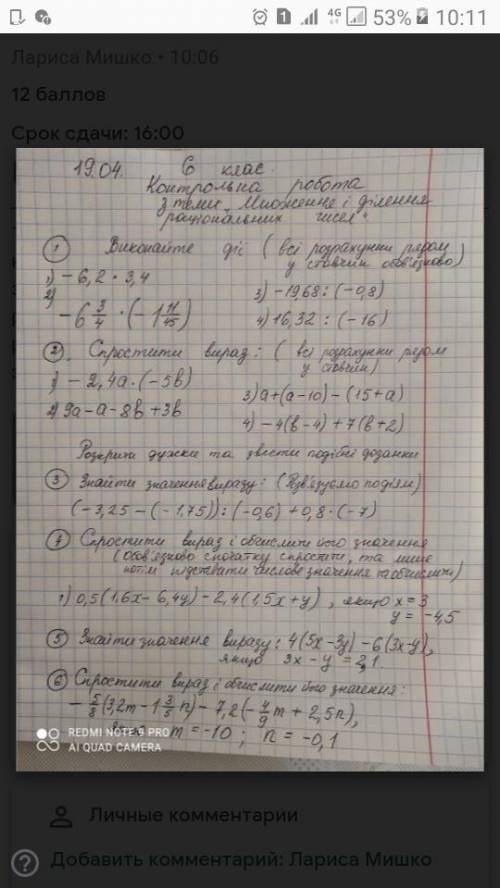 53% 10:11
Лариса Мишко • 10:06
12 баллов
Срок сдачи: 16:00
19.04. 6 клас.
Контрольна робота
з теми „Множення і ділення
раціональних чисел"
① Виконайте дії (всі розрахунки рядом
у стовпчик обов'язково)
1) -6,2 · 3,4
2) -6 3/4 · (-1 11/45)
3) -19,68 : (-0,8)
4) 16,32 : (-16)
② Спростити вираз: (всі розрахунки рядом
у стовпчик)
1) -2,4a · (-5b)
2) 9a-a-8b+3b
3) a+(a-10)-(15+a)
4) -4(b-4)+7(b+2)
Розкрити дужки та звести подібні доданки
③ Знайти значення виразу: (Розв'язуємо по діям)
(-3,25-(-1,75)):(-0,6)+0,8·(-7)
④ Спростити вираз і обчислити його значення
(Обов'язково спочатку спростити, та лише
потім підставляти числове значення та обчислити)
1) 0,5(1,6x-6,4y)-2,4(1,5x+y), якщо x=3
y = -4,5
⑤ Знайти значення виразу: 4(5x-3y)-6(3x-y),
якщо 3x-y=2,1.
⑥ Спростити вираз і обчислити його значення:
-5/8(3,2m-1 3/5 n)-7,2(-4/9 m+2,5n),
m=-10; n=-0,1
REDMI NOTE 9 PRO
AI QUAD CAMERA
Личные комментарии
Добавить комментарий: Лариса Мишко